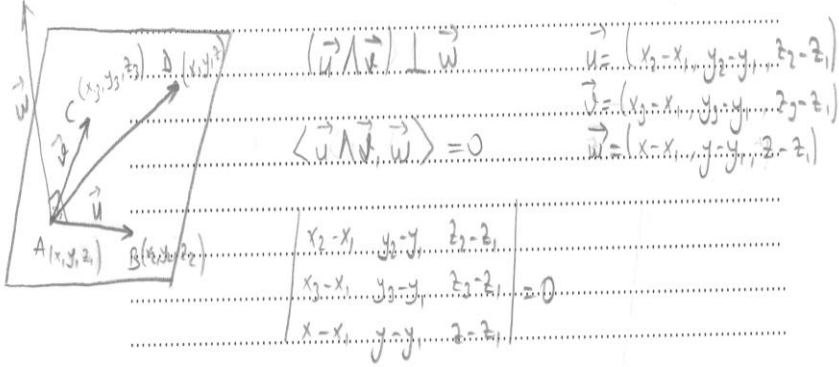 w⃗
C(x₃,y₃,z₃) D(x,y,z)
ϑ⃗
u⃗
A(x₁,y₁,z₁) B(x₂,y₂,z₂)
(u⃗ Λ ϑ⃗) ⊥ w⃗
⟨u⃗ Λ ϑ⃗, w⃗⟩ = 0
u⃗ = (x₂-x₁, y₂-y₁, z₂-z₁)
ϑ⃗ = (x₃-x₁, y₃-y₁, z₃-z₁)
w⃗ = (x-x₁, y-y₁, z-z₁)
| x₂-x₁ y₂-y₁ z₂-z₁ |
| x₃-x₁ y₃-y₁ z₃-z₁ | = 0
| x-x₁ y-y₁ z-z₁ |